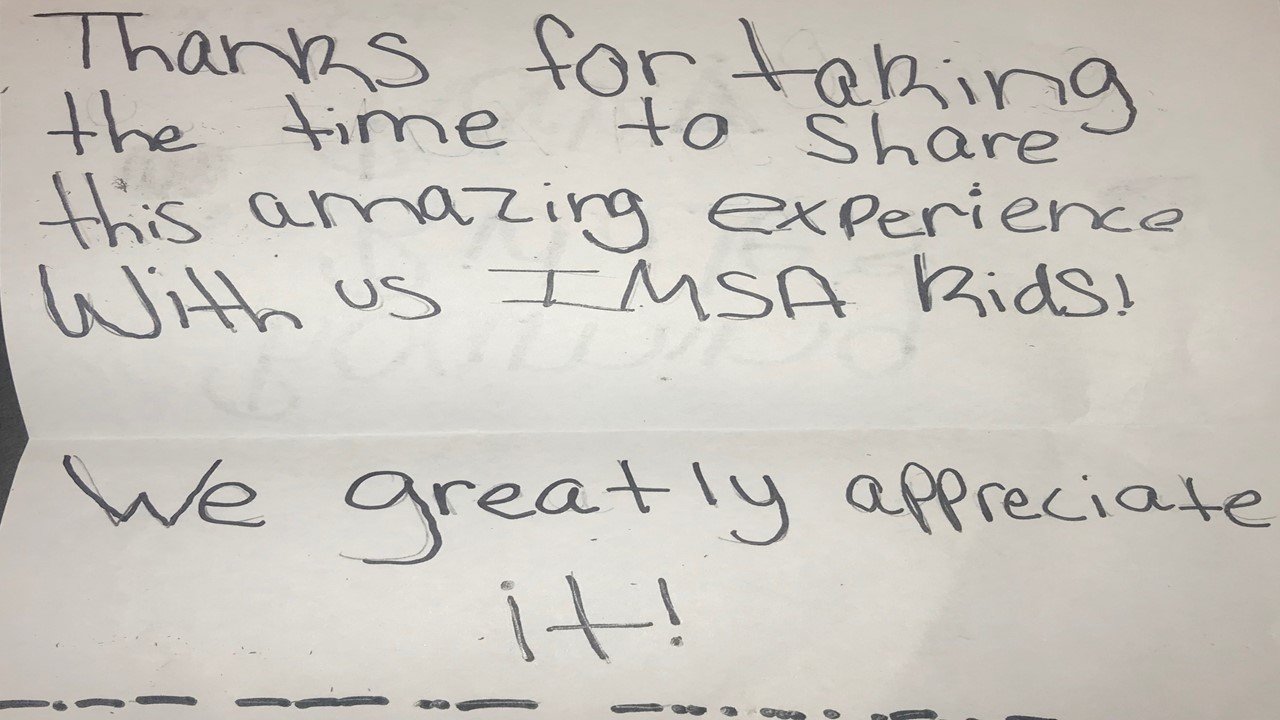 Thanks for taking
the time to share
this amazing experience
With us IMSA kids!
We greatly appreciate
it!